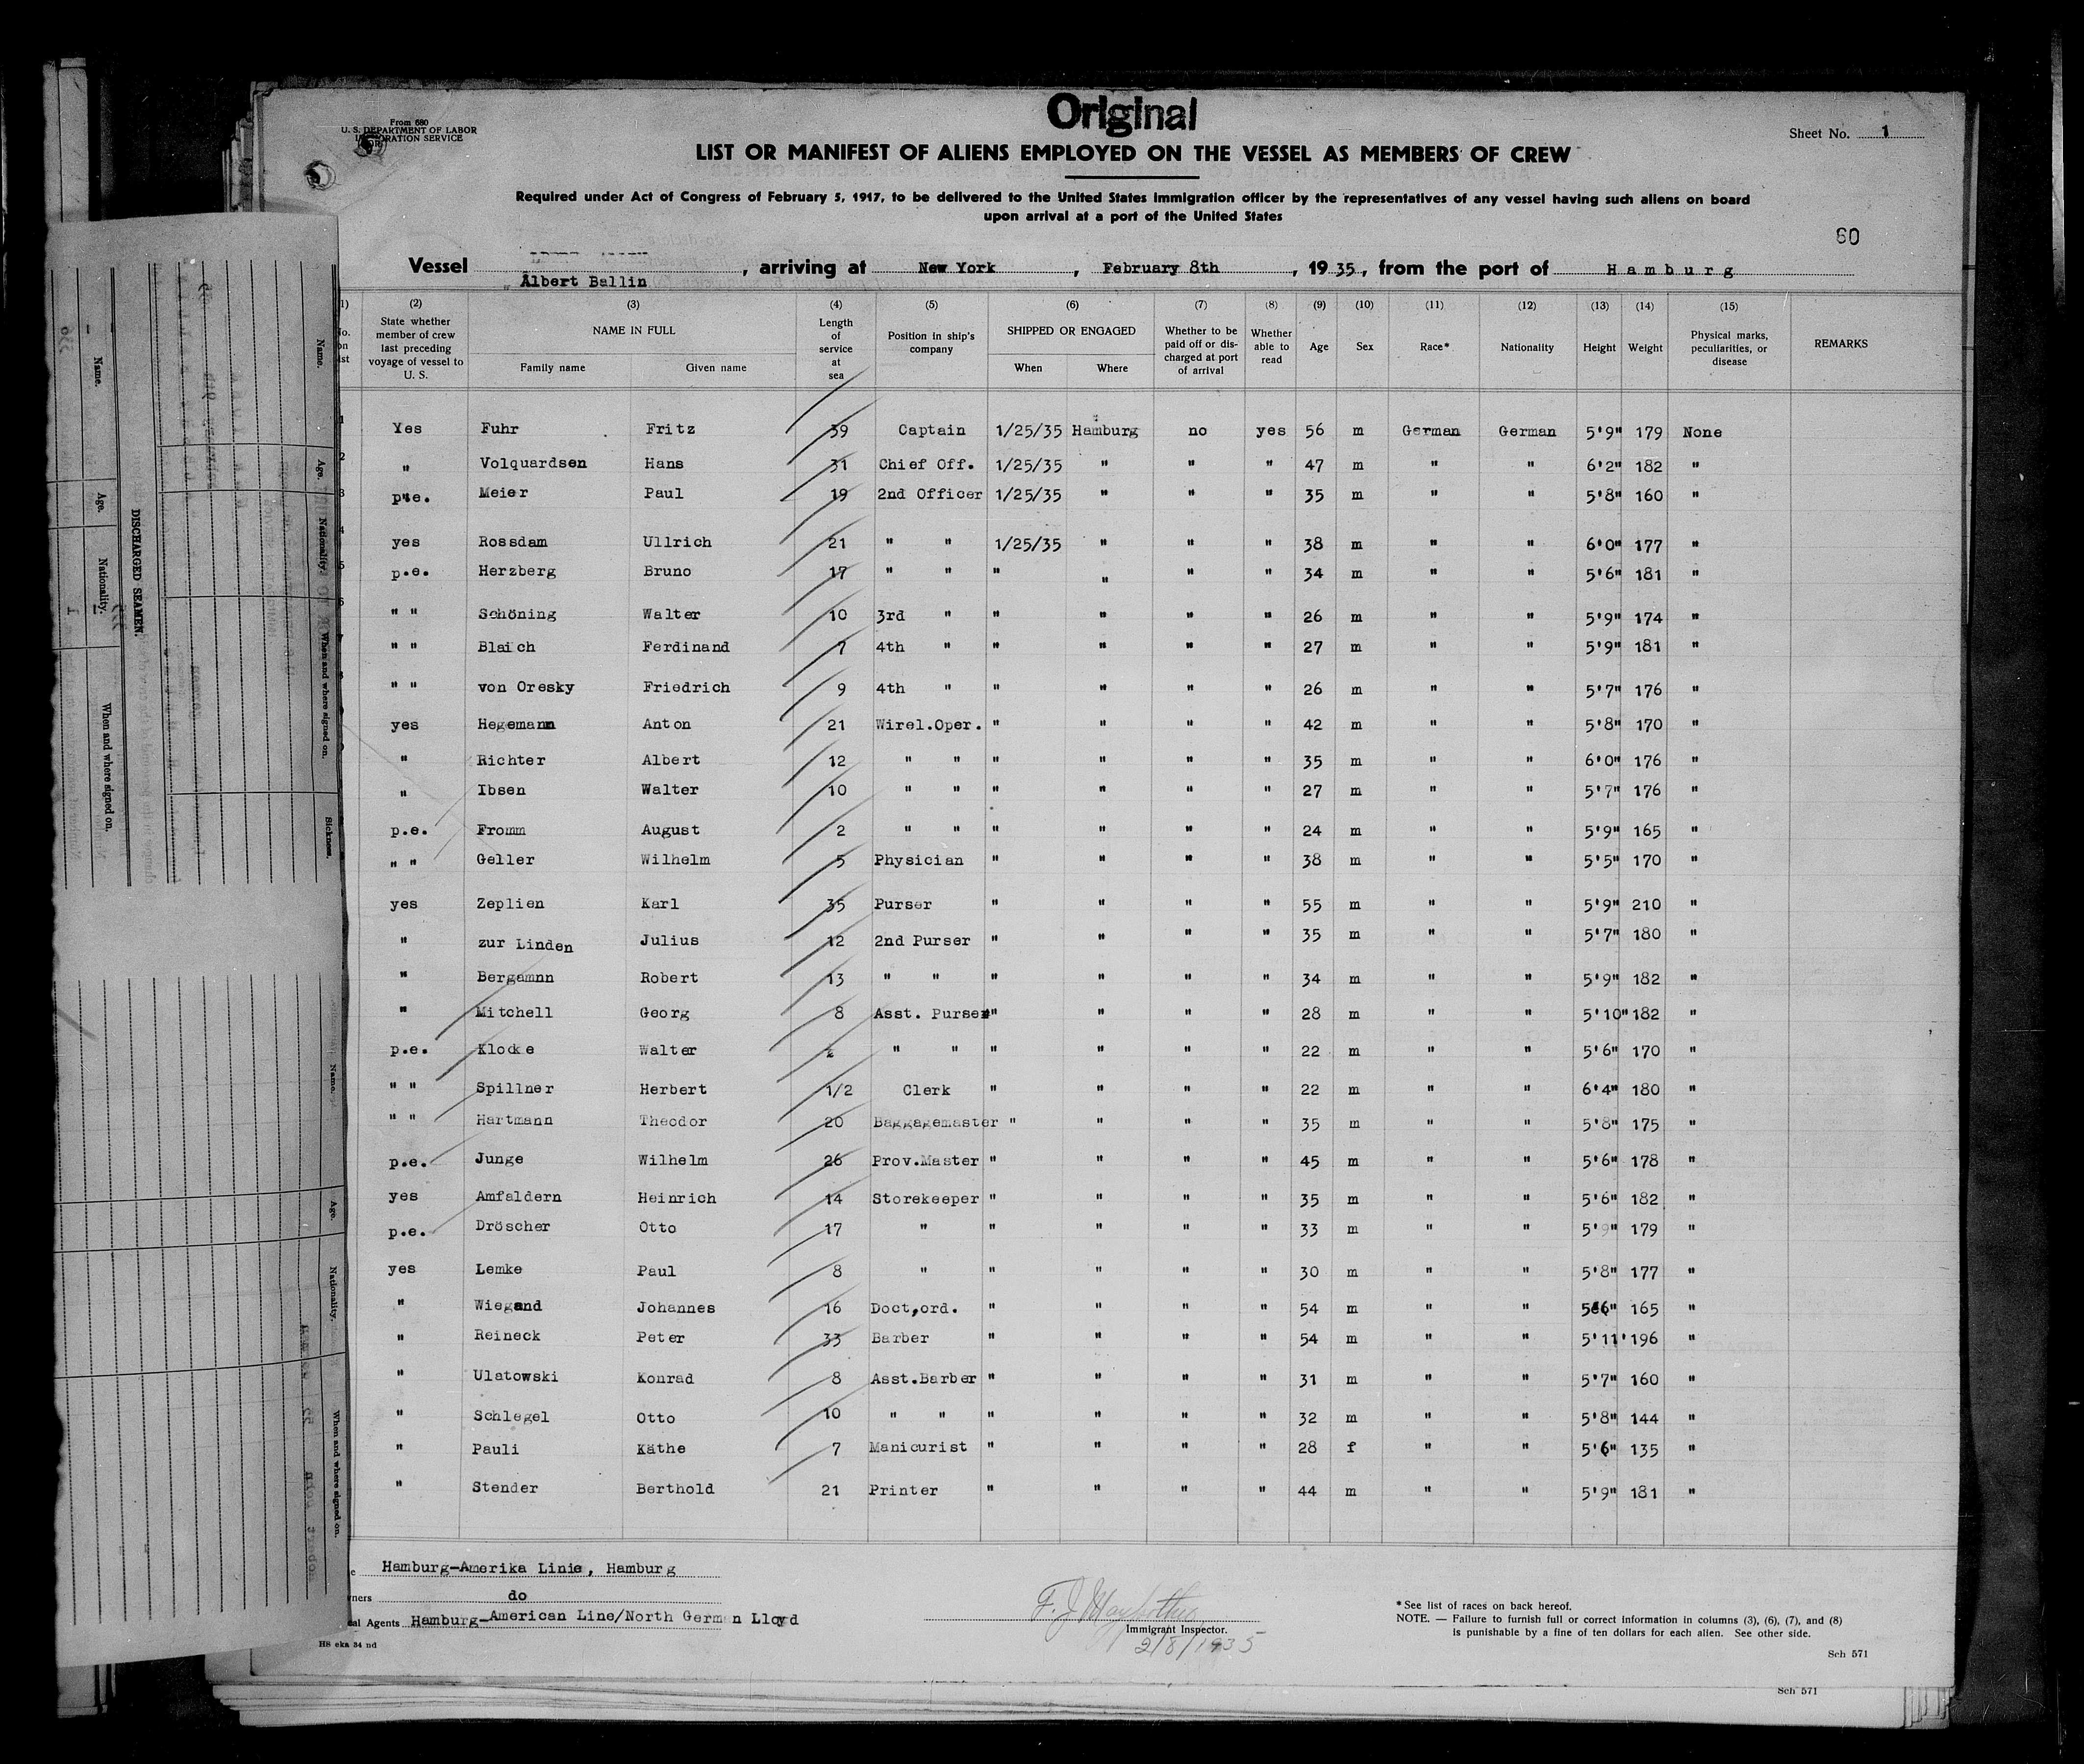 Original
From 680
U. S. DEPARTMENT OF LABOR
IMMIGRATION SERVICE
Sheet No. 1
LIST OR MANIFEST OF ALIENS EMPLOYED ON THE VESSEL AS MEMBERS OF CREW
Required under Act of Congress of February 5, 1917, to be delivered to the United States immigration officer by the representatives of any vessel having such aliens on board
upon arrival at a port of the United States
60
Vessel Albert Ballin , arriving at New York , February 8th , 19 35 , from the port of Hamburg
(2) (3) (4) (5) (6) (7) (8) (9) (10) (11) (12) (13) (14) (15)
State whether member of crew last preceding voyage of vessel to U. S. NAME IN FULL Family name Given name Length of service at sea Position in ship's company SHIPPED OR ENGAGED When Where Whether to be paid off or dis-charged at port of arrival Whether able to read Age Sex Race* Nationality Height Weight Physical marks, peculiarities, or disease REMARKS
1 Yes Fuhr Fritz 39 Captain 1/25/35 Hamburg no yes 56 m German German 5'9" 179 None
2 " Volquardsen Hans 31 Chief Off. 1/25/35 " " " 47 m " " 6'2" 182 "
3 p.e. Meier Paul 19 2nd Officer 1/25/35 " " " 35 m " " 5'8" 160 "
4 yes Rossdam Ullrich 21 " " 1/25/35 " " " 38 m " " 6'0" 177 "
5 p.e. Herzberg Bruno 17 " " " " " " 34 m " " 5'6" 181 "
6 " " Schöning Walter 10 3rd " " " " " 26 m " " 5'9" 174 "
7 " " Blaich Ferdinand 7 4th " " " " " 27 m " " 5'9" 181 "
" " von Oresky Friedrich 9 4th " " " " " 26 m " " 5'7" 176 "
yes Hegemann Anton 21 Wirel.Oper. " " " " 42 m " " 5'8" 170 "
" Richter Albert 12 " " " " " " 35 m " " 6'0" 176 "
" Ibsen Walter 10 " " " " " " 27 m " " 5'7" 176 "
p.e. Fromm August 2 " " " " " " 24 m " " 5'9" 165 "
" " Geller Wilhelm 5 Physician " " " " 38 m " " 5'5" 170 "
yes Zeplien Karl 35 Purser " " " " 55 m " " 5'9" 210 "
" zur Linden Julius 12 2nd Purser " " " " 35 m " " 5'7" 180 "
" Bergamnn Robert 13 " " " " " " 34 m " " 5'9" 182 "
" Mitchell Georg 8 Asst. Purser " " " " 28 m " " 5'10" 182 "
p.e. Klocke Walter " " " " " " 22 m " " 5'6" 170 "
" " Spillner Herbert 1/2 Clerk " " " " 22 m " " 6'4" 180 "
" " Hartmann Theodor 20 Baggagemaster " " " " 35 m " " 5'8" 175 "
p.e. Junge Wilhelm 26 Prov.Master " " " " 45 m " " 5'6" 178 "
yes Amfaldern Heinrich 14 Storekeeper " " " " 35 m " " 5'6" 182 "
p.e. Dröscher Otto 17 " " " " " 33 m " " 5'9" 179 "
yes Lemke Paul 8 " " " " " 30 m " " 5'8" 177 "
" Wiegand Johannes 16 Doct,ord. " " " " 54 m " " 5'6" 165 "
" Reineck Peter 33 Barber " " " " 54 m " " 5'11' 196 "
" Ulatowski Konrad 8 Asst.Barber " " " " 31 m " " 5'7" 160 "
" Schlegel Otto 10 " " " " " " 32 m " " 5'8" 144 "
" Pauli Käthe 7 Manicurist " " " " 28 f " " 5'6" 135 "
" Stender Berthold 21 Printer " " " " 44 m " " 5'9" 181 "
Hamburg-Amerika Linie, Hamburg
do
Agents Hamburg-American Line/North German Lloyd
HS eka 34 nd
Immigrant Inspector.
2/8/1935
* See list of races on back hereof.
NOTE. — Failure to furnish full or correct information in columns (3), (6), (7), and (8)
is punishable by a fine of ten dollars for each alien. See other side.
Sch 571
Sch 571
Name.
Age.
Nationality.
When and where signed on.
DISCHARGED SEAMEN.
Name.
Age.
Nationality.
When and where signed on.
Sickness.
Name.
Age.
Nationality.
When and where signed on.